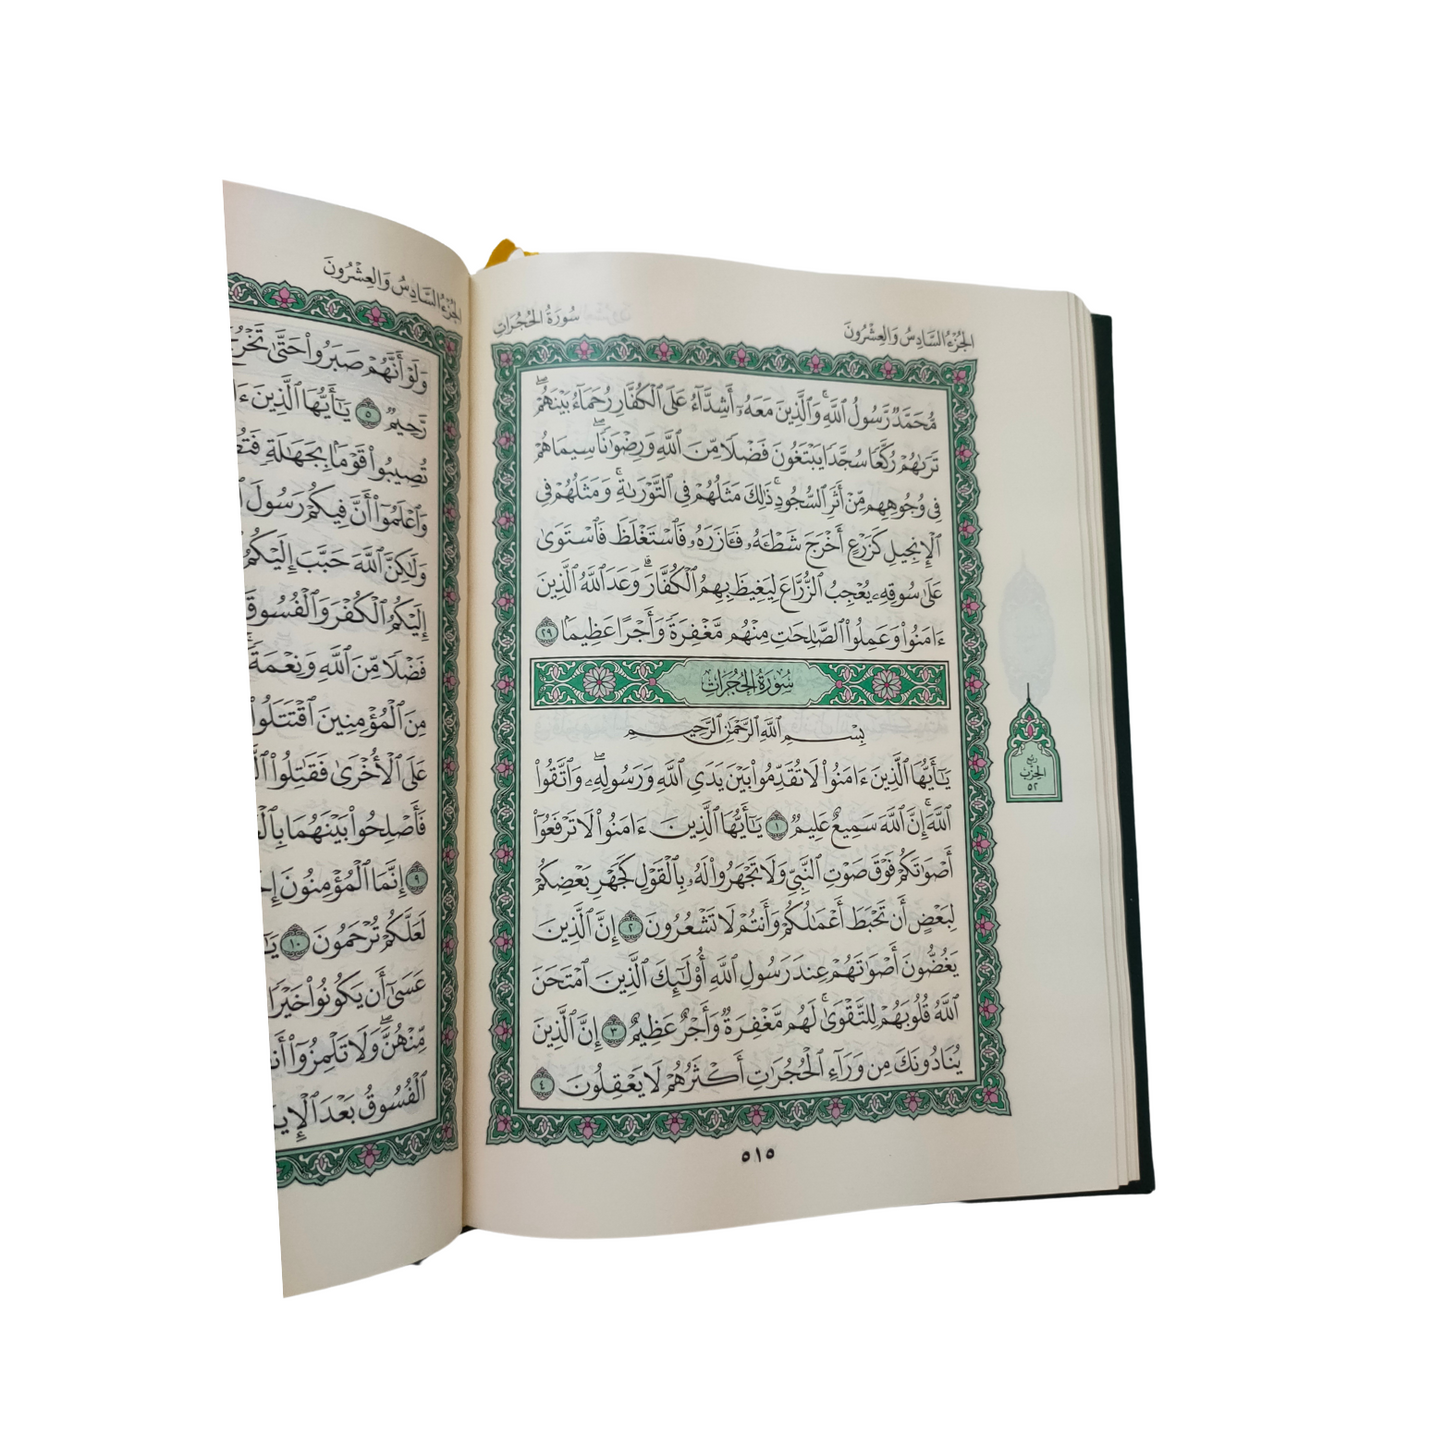 الجُزْءُ السَّادِسُ وَالعِشْرُونَ
سُورَةُ الحُجُرَاتِ
مُّحَمَّدٌ رَّسُولُ ٱللَّهِۚ وَٱلَّذِينَ مَعَهُۥٓ أَشِدَّآءُ عَلَى ٱلْكُفَّارِ رُحَمَآءُ بَيْنَهُمْۖ
تَرَىٰهُمْ رُكَّعًا سُجَّدًا يَبْتَغُونَ فَضْلًا مِّنَ ٱللَّهِ وَرِضْوَٰنًاۖ سِيمَاهُمْ
فِى وُجُوهِهِم مِّنْ أَثَرِ ٱلسُّجُودِۚ ذَٰلِكَ مَثَلُهُمْ فِى ٱلتَّوْرَىٰةِۚ وَمَثَلُهُمْ فِى
ٱلْإِنجِيلِ كَزَرْعٍ أَخْرَجَ شَطْـَٔهُۥ فَـَٔازَرَهُۥ فَٱسْتَغْلَظَ فَٱسْتَوَىٰ
عَلَىٰ سُوقِهِۦ يُعْجِبُ ٱلزُّرَّاعَ لِيَغِيظَ بِهِمُ ٱلْكُفَّارَۗ وَعَدَ ٱللَّهُ ٱلَّذِينَ
ءَامَنُوا۟ وَعَمِلُوا۟ ٱلصَّٰلِحَٰتِ مِنْهُم مَّغْفِرَةً وَأَجْرًا عَظِيمًۢا ٢٩
سُورَةُ الحُجُرَاتِ
بِسْمِ ٱللَّهِ ٱلرَّحْمَٰنِ ٱلرَّحِيمِ
يَٰٓأَيُّهَا ٱلَّذِينَ ءَامَنُوا۟ لَا تُقَدِّمُوا۟ بَيْنَ يَدَىِ ٱللَّهِ وَرَسُولِهِۦۖ وَٱتَّقُوا۟
ٱللَّهَۚ إِنَّ ٱللَّهَ سَمِيعٌ عَلِيمٌ ١ يَٰٓأَيُّهَا ٱلَّذِينَ ءَامَنُوا۟ لَا تَرْفَعُوٓا۟
أَصْوَٰتَكُمْ فَوْقَ صَوْتِ ٱلنَّبِىِّ وَلَا تَجْهَرُوا۟ لَهُۥ بِٱلْقَوْلِ كَجَهْرِ بَعْضِكُمْ
لِبَعْضٍ أَن تَحْبَطَ أَعْمَٰلُكُمْ وَأَنتُمْ لَا تَشْعُرُونَ ٢ إِنَّ ٱلَّذِينَ
يَغُضُّونَ أَصْوَٰتَهُمْ عِندَ رَسُولِ ٱللَّهِ أُو۟لَٰٓئِكَ ٱلَّذِينَ ٱمْتَحَنَ
ٱللَّهُ قُلُوبَهُمْ لِلتَّقْوَىٰۚ لَهُم مَّغْفِرَةٌ وَأَجْرٌ عَظِيمٌ ٣ إِنَّ ٱلَّذِينَ
يُنَادُونَكَ مِن وَرَآءِ ٱلْحُجُرَٰتِ أَكْثَرُهُمْ لَا يَعْقِلُونَ ٤
٥١٥
ربع
الحزب
٥٢
الجُزْءُ السَّادِسُ وَالعِشْرُونَ
وَلَوْ أَنَّهُمْ صَبَرُوا۟ حَتَّىٰ
رَّحِيمٌ ٥ يَٰٓأَيُّهَا ٱلَّذِينَ
تُصِيبُوا۟ قَوْمًۢا بِجَهَٰلَةٍ
وَٱعْلَمُوٓا۟ أَنَّ فِيكُمْ رَسُولَ
وَلَٰكِنَّ ٱللَّهَ حَبَّبَ إِلَيْكُمُ
إِلَيْكُمُ ٱلْكُفْرَ وَٱلْفُسُوقَ
فَضْلًا مِّنَ ٱللَّهِ وَنِعْمَةً
مِنَ ٱلْمُؤْمِنِينَ ٱقْتَتَلُوا۟
عَلَى ٱلْأُخْرَىٰ فَقَٰتِلُوا۟
فَأَصْلِحُوا۟ بَيْنَهُمَا
٩ إِنَّمَا ٱلْمُؤْمِنُونَ
لَعَلَّكُمْ تُرْحَمُونَ ١٠
عَسَىٰٓ أَن يَكُونُوا۟ خَيْرًا
مِّنْهُنَّۖ وَلَا تَلْمِزُوٓا۟
ٱلْفُسُوقُ بَعْدَ